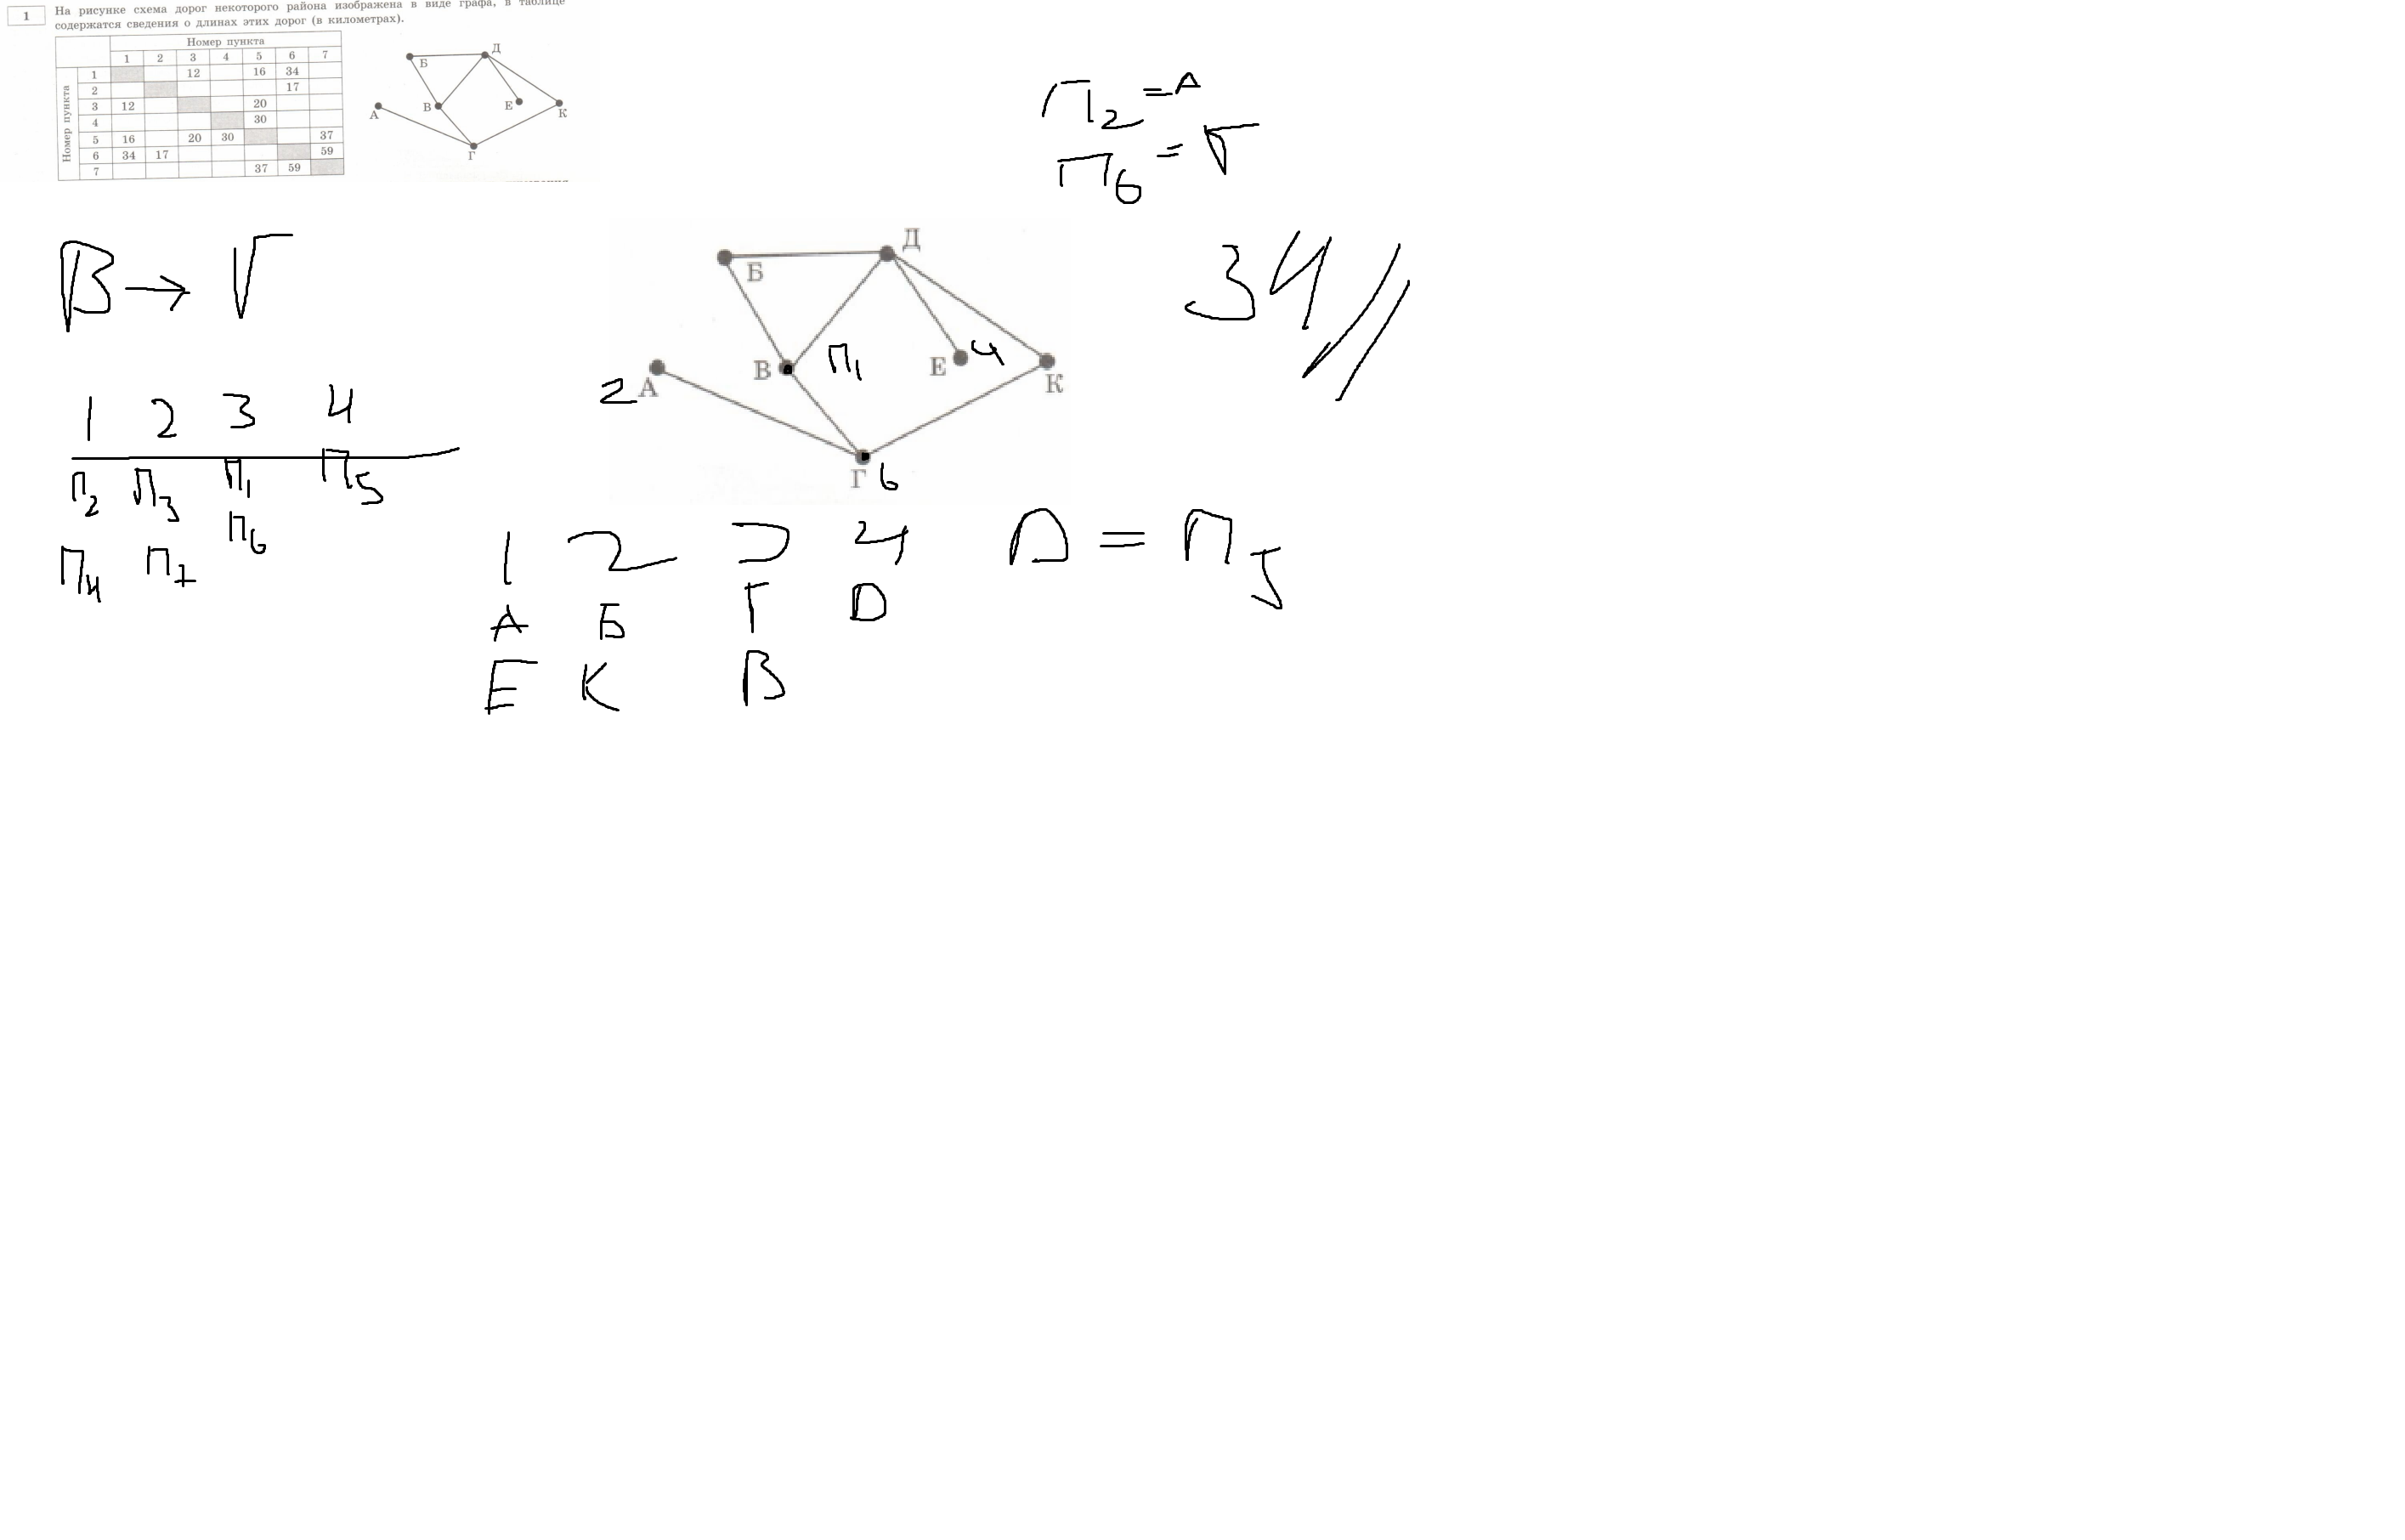 1
На рисунке схема дорог некоторого района изображена в виде графа, в таблице
содержатся сведения о длинах этих дорог (в километрах).
Номер пункта
1 2 3 4 5 6 7
Номер пункта
1 12 16 34
2 17
3 12 20
4 30
5 16 20 30 37
6 34 17 59
7 37 59
Б Д
А В Е К
Г
П2 = А
П6 = Г
В → Г
34
Д
Б
В П1 Е 4 К
2 А
Г 6
1 2 3 4
П2 П3 П1 П5
П6
П4 П7
1 2 3 4
А Б Г D
Е К В
D = П5